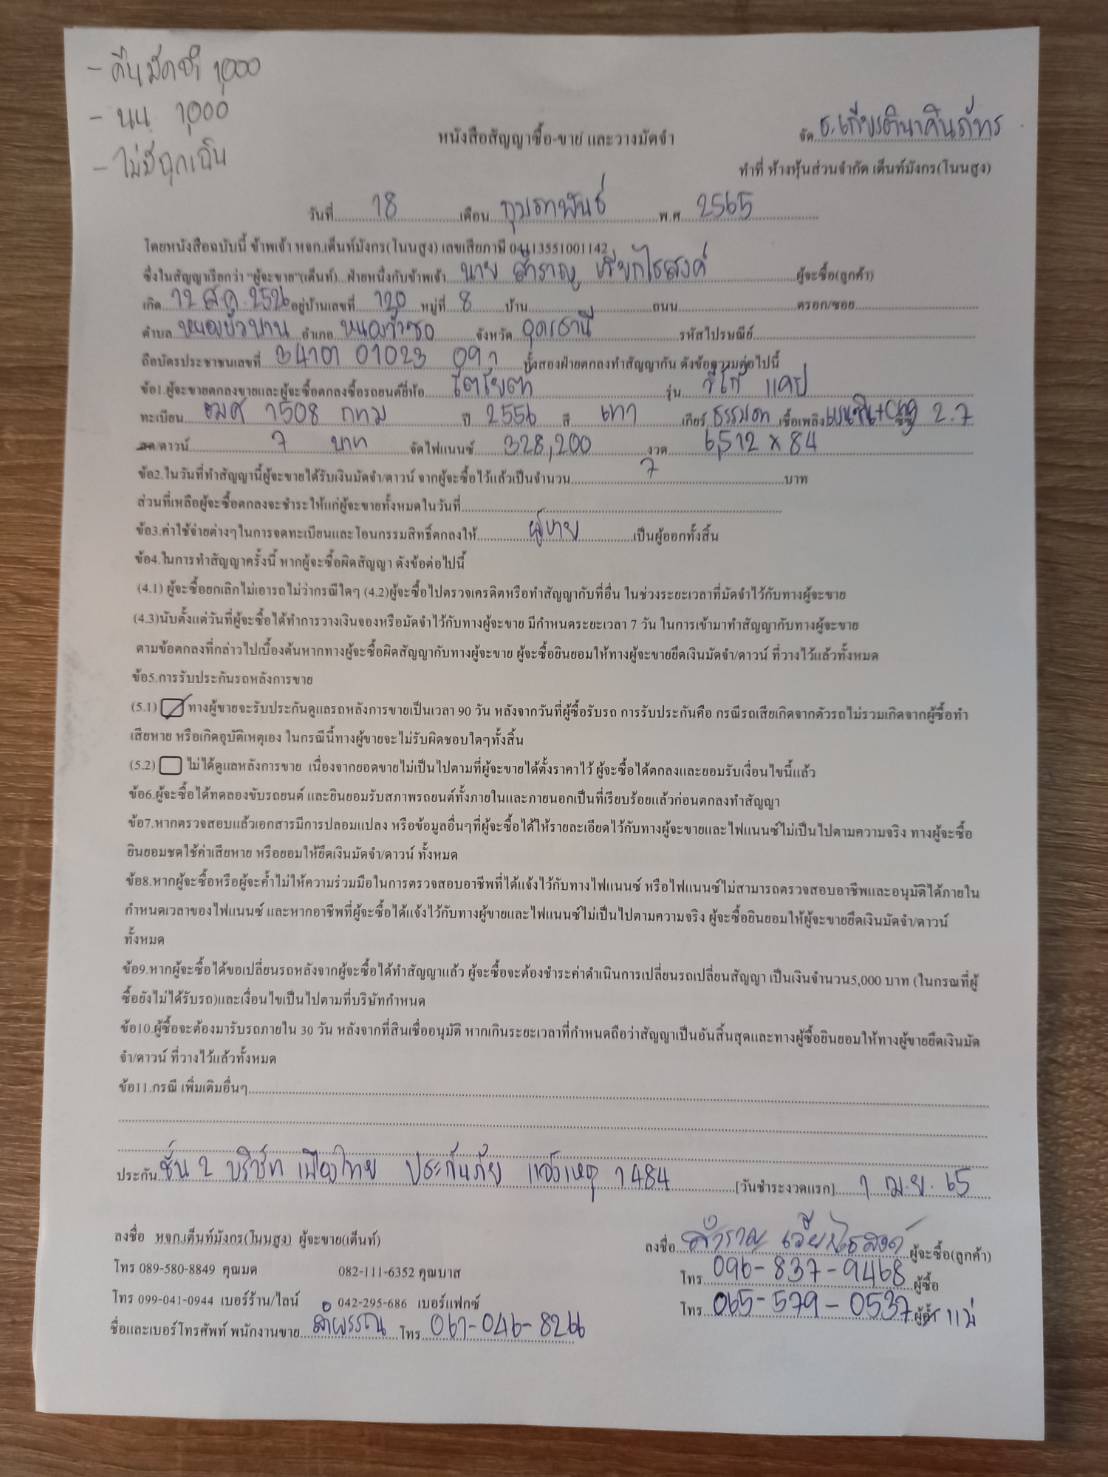 - คืนมัดจำ 1,000
- นน. 1,000
- ไม่มีฉุกเฉิน
จัด ธ.เกียรตินาคินภัทร
หนังสือสัญญาซื้อ-ขาย และวางมัดจำ
ทำที่ ห้างหุ้นส่วนจำกัด เต็นท์มังกร(โนนสูง)
วันที่ 18 เดือน กุมภาพันธ์ พ.ศ. 2565
โดยหนังสือฉบับนี้ ข้าพเจ้า หจก.เต็นท์มังกร(โนนสูง) เลขเสียภามี 0413551001142
ซึ่งในสัญญาเรียกว่า "ผู้จะขาย"(เต็นท์) ฝ่ายหนึ่งกับข้าพเจ้า นาย สำราญ เวียกไธสงค์ ผู้จะซื้อ(ลูกค้า)
เกิด 12 ส.ค. 2520 อยู่บ้านเลขที่ 120 หมู่ที่ 8 บ้าน ถนน ตรอก/ซอย
ตำบล หนองบัวบาน อำเภอ หนองวัวซอ จังหวัด อุดรธานี รหัสไปรษณีย์
ถือบัตรประชาชนเลขที่ ทั้งสองฝ่ายตกลงทำสัญญากัน ดังข้อความต่อไปนี้
ข้อ1.ผู้จะขายตกลงขายและผู้จะซื้อตกลงซื้อรถยนต์ยี่ห้อ โตโยต้า รุ่น วีโก้ แคป
ทะเบียน 1508 กทม ปี 2556 สี เทา เกียร์ ธรรมดา เชื้อเพลิง เบนซิน+ 2.7
สด/ดาวน์ 7 บาท จัดไฟแนนซ์ 328,200 งวด 6,512 x 84
ข้อ2.ในวันที่ทำสัญญานี้ผู้จะขายได้รับเงินมัดจำ/ดาวน์ จากผู้จะซื้อไว้แล้วเป็นจำนวน 7 บาท
ส่วนที่เหลือผู้จะซื้อตกลงจะชำระให้แก่ผู้จะขายทั้งหมดในวันที่
ข้อ3.ค่าใช้จ่ายต่างๆในการจดทะเบียนและโอนกรรมสิทธิ์ตกลงให้ ผู้ขาย เป็นผู้ออกทั้งสิ้น
ข้อ4.ในการทำสัญญาครั้งนี้ หากผู้จะซื้อผิดสัญญา ดังข้อต่อไปนี้
(4.1) ผู้จะซื้อยกเลิกไม่เอารถไม่ว่ากรณีใดๆ (4.2)ผู้จะซื้อไปตรวจเครดิตหรือทำสัญญากับที่อื่น ในช่วงระยะเวลาที่มัดจำไว้กับทางผู้จะขาย
(4.3)นับตั้งแต่วันที่ผู้จะซื้อได้ทำการวางเงินจองหรือมัดจำไว้กับทางผู้จะขาย มีกำหนดระยะเวลา 7 วัน ในการเข้ามาทำสัญญากับทางผู้จะขาย
ตามข้อตกลงที่กล่าวไปเบื้องต้นหากทางผู้จะซื้อผิดสัญญากับทางผู้จะขาย ผู้จะซื้อยินยอมให้ทางผู้จะขายยึดเงินมัดจำ/ดาวน์ ที่วางไว้แล้วทั้งหมด
ข้อ5.การรับประกันรถหลังการขาย
(5.1) ทางผู้ขายจะรับประกันดูแลรถหลังการขายเป็นเวลา 90 วัน หลังจากวันที่ผู้ซื้อรับรถ การรับประกันคือ กรณีรถเสียเกิดจากตัวรถไม่รวมเกิดจากผู้ซื้อทำ
เสียหาย หรือเกิดอุบัติเหตุเอง ในกรณีนี้ทางผู้ขายจะไม่รับผิดชอบใดๆทั้งสิ้น
(5.2) ไม่ได้ดูแลหลังการขาย เนื่องจากยอดขายไม่เป็นไปตามที่ผู้จะขายได้ตั้งราคาไว้ ผู้จะซื้อได้ตกลงและยอมรับเงื่อนไขนี้แล้ว
ข้อ6.ผู้จะซื้อได้ทดลองขับรถยนต์ และยินยอมรับสภาพรถยนต์ทั้งภายในและภายนอกเป็นที่เรียบร้อยแล้วก่อนตกลงทำสัญญา
ข้อ7.หากตรวจสอบแล้วเอกสารมีการปลอมแปลง หรือข้อมูลอื่นๆที่ผู้จะซื้อได้ให้รายละเอียดไว้กับทางผู้จะขายและไฟแนนซ์ไม่เป็นไปตามความจริง ทางผู้จะซื้อ
ยินยอมชดใช้ค่าเสียหาย หรือยอมให้ยึดเงินมัดจำ/ดาวน์ ทั้งหมด
ข้อ8.หากผู้จะซื้อหรือผู้จะค้ำไม่ให้ความร่วมมือในการตรวจสอบอาชีพที่ได้แจ้งไว้กับทางไฟแนนซ์ หรือไฟแนนซ์ไม่สามารถตรวจสอบอาชีพและอนุมัติได้ภายใน
กำหนดเวลาของไฟแนนซ์ และหากอาชีพที่ผู้จะซื้อได้แจ้งไว้กับทางผู้ขายและไฟแนนซ์ไม่เป็นไปตามความจริง ผู้จะซื้อยินยอมให้ผู้จะขายยึดเงินมัดจำ/ดาวน์
ทั้งหมด
ข้อ9.หากผู้จะซื้อได้ขอเปลี่ยนรถหลังจากผู้จะซื้อได้ทำสัญญาแล้ว ผู้จะซื้อจะต้องชำระค่าดำเนินการเปลี่ยนรถเปลี่ยนสัญญา เป็นเงินจำนวน5,000 บาท (ในกรณที่ผู้
ซื้อยังไม่ได้รับรถ)และเงื่อนไขเป็นไปตามที่บริษัทกำหนด
ข้อ10.ผู้ซื้อจะต้องมารับรถภายใน 30 วัน หลังจากที่สินเชื่ออนุมัติ หากเกินระยะเวลาที่กำหนดถือว่าสัญญาเป็นอันสิ้นสุดและทางผู้ซื้อยินยอมให้ทางผู้ขายยึดเงินมัด
จำ/ดาวน์ ที่วางไว้แล้วทั้งหมด
ข้อ11.กรณี เพิ่มเติมอื่นๆ
ประกัน ชั้น 2 บริษัท เมืองไทย ประกันภัย แจ้งเหตุ 1484 [วันชำระงวดแรก] 1 เม.ย. 65
ลงชื่อ หจก.เต็นท์มังกร(โนนสูง) ผู้จะขาย(เต็นท์)
ลงชื่อ สำราญ เวียกไธสงค์ ผู้จะซื้อ(ลูกค้า)
โทร 089-580-8849 คุณมด 082-111-6352 คุณบาส
โทร 096-837-9468 ผู้ซื้อ
โทร 099-041-0944 เบอร์ร้าน/ไลน์ 042-295-686 เบอร์แฟกซ์
โทร 065-579-0537 แม่
ชื่อและเบอร์โทรศัพท์ พนักงานขาย ลำพรรณ โทร